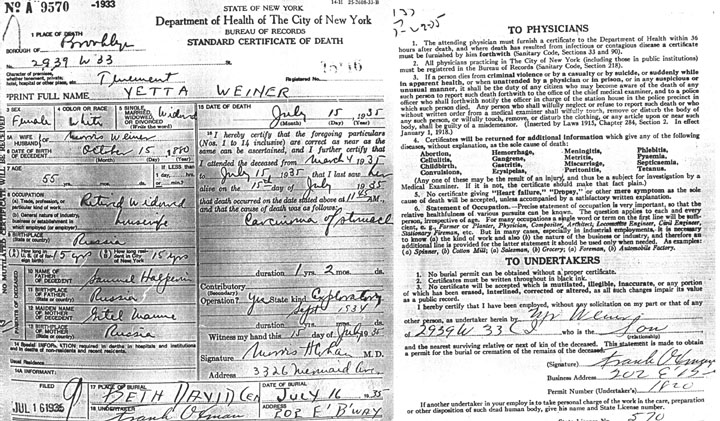 No A 9570 -1933
STATE OF NEW YORK
Department of Health of The City of New York
BUREAU OF RECORDS
STANDARD CERTIFICATE OF DEATH
1 PLACE OF DEATH
BOROUGH OF Brooklyn
2939 W 33
Character of premises,
Tenement
Registered No.
PRINT FULL NAME YETTA WEINER
3 SEX
Female
4 COLOR OR RACE
White
5 SINGLE, MARRIED, WIDOWED, OR DIVORCED
(Write the word)
Widowed
WIFE
HUSBAND
Morris Weiner
DATE OF BIRTH OF DECEDENT
October 15 1880
(Month) (Day) (Year)
7 AGE
55 yrs.
If LESS than
8 OCCUPATION
(a) Trade, profession, or particular kind of work
Retired Widowed
(b) General nature of industry, business or establishment in which employed (or employer)
housewife
BIRTHPLACE
(State or country)
Russia
15 yrs
15 yrs
10 NAME OF FATHER OF DECEDENT
Samuel Halperin
BIRTHPLACE OF FATHER
(State or country)
Russia
12 MAIDEN NAME OF MOTHER OF DECEDENT
13 BIRTHPLACE OF MOTHER
(State or country)
Russia
14 Special INFORMATION required in deaths in hospitals and institutions
and in deaths of non-residents and recent residents.
Usual Residence
14A INFORMANT
15 DATE OF DEATH
July 15 1935
(Month) (Day) (Year)
16 I hereby certify that the foregoing particulars
(Nos. 1 to 14 inclusive) are correct as near as the
same can be ascertained, and I further certify that
I attended the deceased from March 4 1935
to July 15 1935 that I last saw her
alive on the 15th day of July 1935
that death occurred on the date stated above at 11
and that the cause of death was as follows:
Carcinoma of stomach
duration 1 yrs. 2 mos. ds.
Contributory
(Secondary)
duration yrs. mos. ds.
Operation? Yes State kind Exploratory
Sept 1934
Witness my hand this 15 day of July 1935
Signature M.D.
Address 3326 Mermaid Ave.
FILED
JUL 16 1935
9
17 PLACE OF BURIAL
BETH DAVID CEM
DATE OF BURIAL
JULY 16 1935
18 UNDERTAKER
Frank Osman
ADDRESS
202 E' B'WAY
TO PHYSICIANS
1. The attending physician must furnish a certificate to the Department of Health within 36
hours after death, and where death has resulted from infectious or contagious disease a certificate
must be furnished by him forthwith (Sanitary Code, Sections 33 and 90).
2. All physicians practicing in The City of New York (including those in public institutions)
must be registered in the Bureau of Records (Sanitary Code, Section 218).
3. If a person dies from criminal violence or by a casualty or by suicide, or suddenly while
in apparent health, or when unattended by a physician or in prison, or in any suspicious or
unusual manner, it shall be the duty of any citizen who may become aware of the death of any
such person to report such death forthwith to the office of the chief medical examiner, and to a police
officer who shall forthwith notify the officer in charge of the station house in the police precinct in
which such person died. Any person who shall wilfully neglect or refuse to report such death or who
without written order from a medical examiner shall wilfully touch, remove or disturb the body of
any such person, or wilfully touch, remove, or disturb the clothing, or any article upon or near such
body, shall be guilty of a misdemeanor. (Inserted by Laws 1915, Chapter 284, Section 2. In effect
January 1, 1918.)
4. Certificates will be returned for additional information which give any of the following
diseases, without explanation, as the sole cause of death:
Abortion, Hemorrhage, Meningitis, Phlebitis,
Cellulitis, Gangrene, Metritis, Pyaemia,
Childbirth, Gastritis, Miscarriage, Septicaemia,
Convulsions, Erysipelas, Peritonitis, Tetanus.
(Any one of these may be the result of an injury, and thus be a subject for investigation by a
Medical Examiner. If it is not, the certificate should make that fact plain.)
5. No certificate giving "Heart failure," "Dropsy," or other mere symptom as the sole
cause of death will be accepted, unless accompanied by a satisfactory written explanation.
6. Statement of Occupation.—Precise statement of occupation is very important, so that the
relative healthfulness of various pursuits can be known. The question applies to each and every
person, irrespective of age. For many occupations a single word or term on the first line will be suffi-
cient, e. g., Farmer or Planter, Physician, Compositor, Architect, Locomotive Engineer, Civil Engineer,
Stationary Fireman, etc. But in many cases, especially in industrial employments, it is necessary
to know (a) the kind of work and also (b) the nature of the business or industry, and therefore an
additional line is provided for the latter statement it should be used only when needed. As examples:
(a) Spinner, (b) Cotton Mill; (a) Salesman, (b) Grocery; (a) Foreman, (b) Automobile Factory.
TO UNDERTAKERS
1. No burial permit can be obtained without a proper certificate.
2. Certificates must be written throughout in black ink.
3. No certificate will be accepted which is mutilated, illegible, inaccurate, or any portion
of which has been erased, interlined, corrected or altered, as all such changes impair its value
as a public record.
I hereby certify that I have been employed, without any solicitation on my part or that of any
other person, as undertaker herein by Mr Weiner
of 2939 W 33 who is the Son
(relationship)
and the nearest surviving relative or next of kin of the deceased. This statement is made to obtain
a permit for the burial or cremation of the remains of the deceased.
(Signature) Frank Osman
Business Address 202 E
Permit Number (Undertaker's) 1820
If another undertaker in your employ is to take personal charge of the work in the care, preparation
or other disposition of such dead human body, give his name and State License number.
570